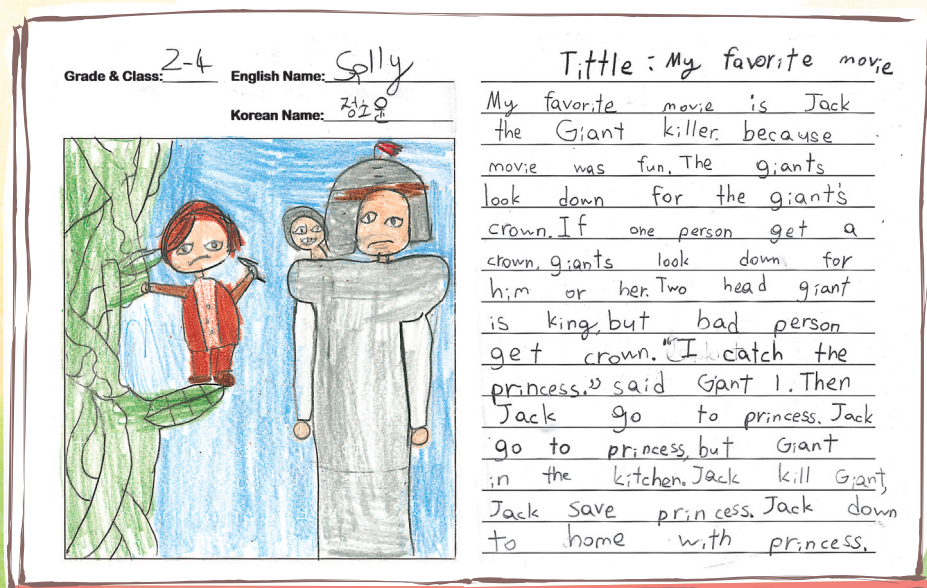 Grade & Class: 2-4 English Name: Sally
Korean Name:
Tittle : My favorite movie
My favorite movie is Jack
the Giant killer. because
movie was fun. The giants
look down for the giant's
crown. If one person get a
crown, giants look down for
him or her. Two head giant
is king, but bad person
get crown. "I catch the
princess." said Gjant 1. Then
Jack go to princess. Jack
go to princess, but Giant
in the kitchen. Jack kill Giant,
Jack save princess. Jack down
to home with princess.